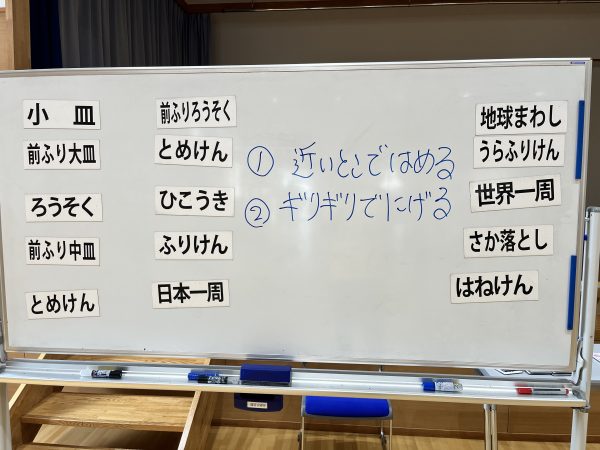 小　皿
前ふり大皿
ろうそく
前ふり中皿
とめけん
前ふりろうそく
とめけん
ひこうき
ふりけん
日本一周
① 近いとこではめる
② ギリギリでにげる
地球まわし
うらふりけん
世界一周
さか落とし
はねけん